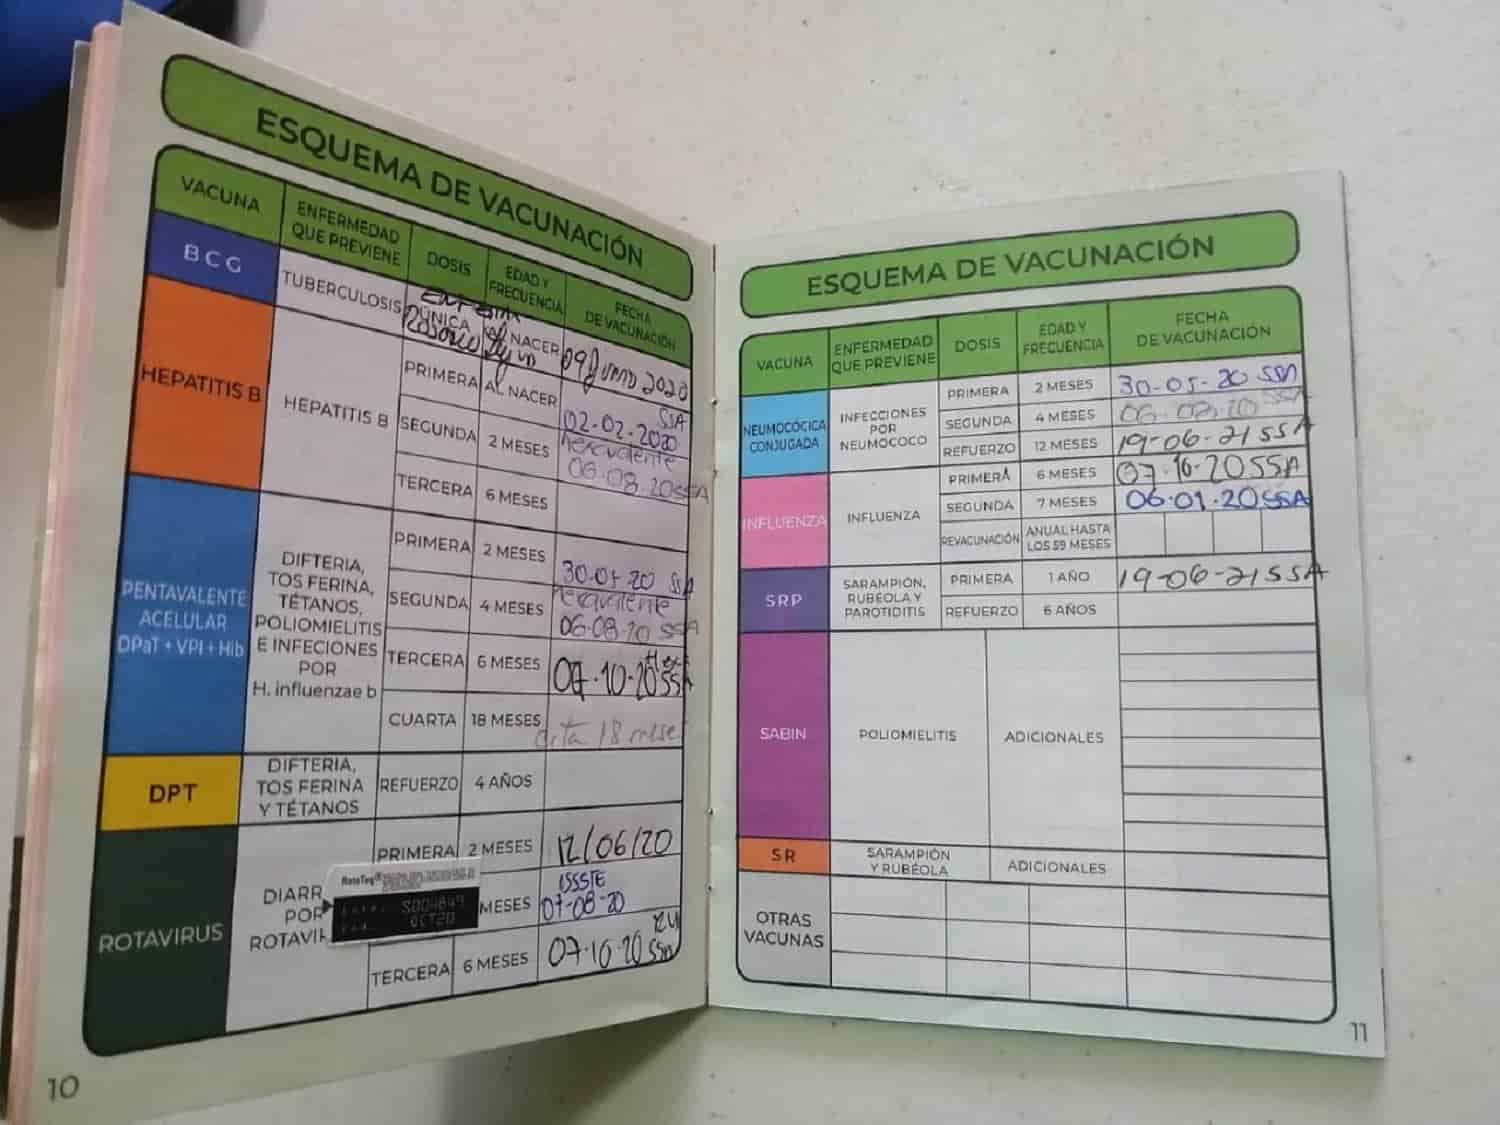 ESQUEMA DE VACUNACIÓN
VACUNA
ENFERMEDAD
QUE PREVIENE
DOSIS
EDAD Y
FRECUENCIA
FECHA
DE VACUNACIÓN
BCG
TUBERCULOSIS
ÚNICA
AL NACER
09 Junio 2020
HEPATITIS B
HEPATITIS B
PRIMERA
AL NACER
SSA
02-02-2020
SEGUNDA
2 MESES
hexavalente
06-08-20 SSA
TERCERA
6 MESES
PENTAVALENTE
ACELULAR
DPaT + VPI + Hib
DIFTERIA,
TOS FERINA,
TÉTANOS,
POLIOMIELITIS
E INFECIONES
POR
H. influenzae b
PRIMERA
2 MESES
SSA
SEGUNDA
4 MESES
hexavalente
06-08-20 SSA
TERCERA
6 MESES
07-10-20 SSA
CUARTA
18 MESES
cita 18 meses
DPT
DIFTERIA,
TOS FERINA
Y TÉTANOS
REFUERZO
4 AÑOS
ROTAVIRUS
DIARR
POR
ROTAVI
PRIMERA
2 MESES
12/06/20
RotaTeq®
S004849
OCT20
MESES
ISSSTE
07-08-20
TERCERA
6 MESES
07-10-20 SSA
10
ESQUEMA DE VACUNACIÓN
VACUNA
ENFERMEDAD
QUE PREVIENE
DOSIS
EDAD Y
FRECUENCIA
FECHA
DE VACUNACIÓN
NEUMOCÓCICA
CONJUGADA
INFECCIONES
POR
NEUMOCOCO
PRIMERA
2 MESES
30-05-20 SSA
SEGUNDA
4 MESES
SSA
REFUERZO
12 MESES
19-06-21 SSA
INFLUENZA
INFLUENZA
PRIMERA
6 MESES
07-10-20 SSA
SEGUNDA
7 MESES
06-01-20 SSA
REVACUNACIÓN
ANUAL HASTA
LOS 59 MESES
SRP
SARAMPIÓN,
RUBÉOLA Y
PAROTIDITIS
PRIMERA
1 AÑO
19-06-21 SSA
REFUERZO
6 AÑOS
SABIN
POLIOMIELITIS
ADICIONALES
SR
SARAMPIÓN
Y RUBÉOLA
ADICIONALES
OTRAS
VACUNAS
11